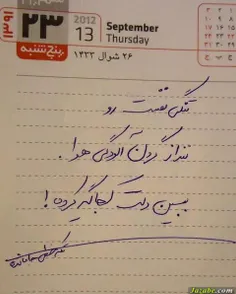 ۱۳۹۱
۲۳
پنج شنبه
2012
13
September
Thursday
۲۶ شوال ۱۴۳۳
تنگی نفست رو
ننداز گردن آلودگی هوا .
ببین دلت کجا گیر کرده !
Jazabe.com